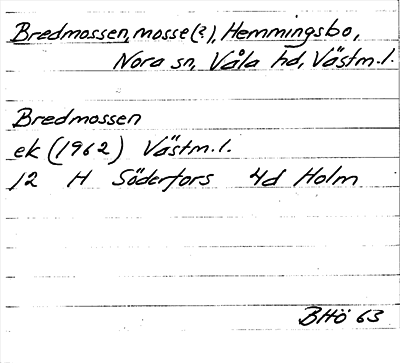 Bredmossen, mosse(?), Hemmingsbo,
Nora sn, Våla hd, Västm.l.
Bredmossen
ek (1962) Västm.l.
12 H Söderfors 4d Holm
BHö 63